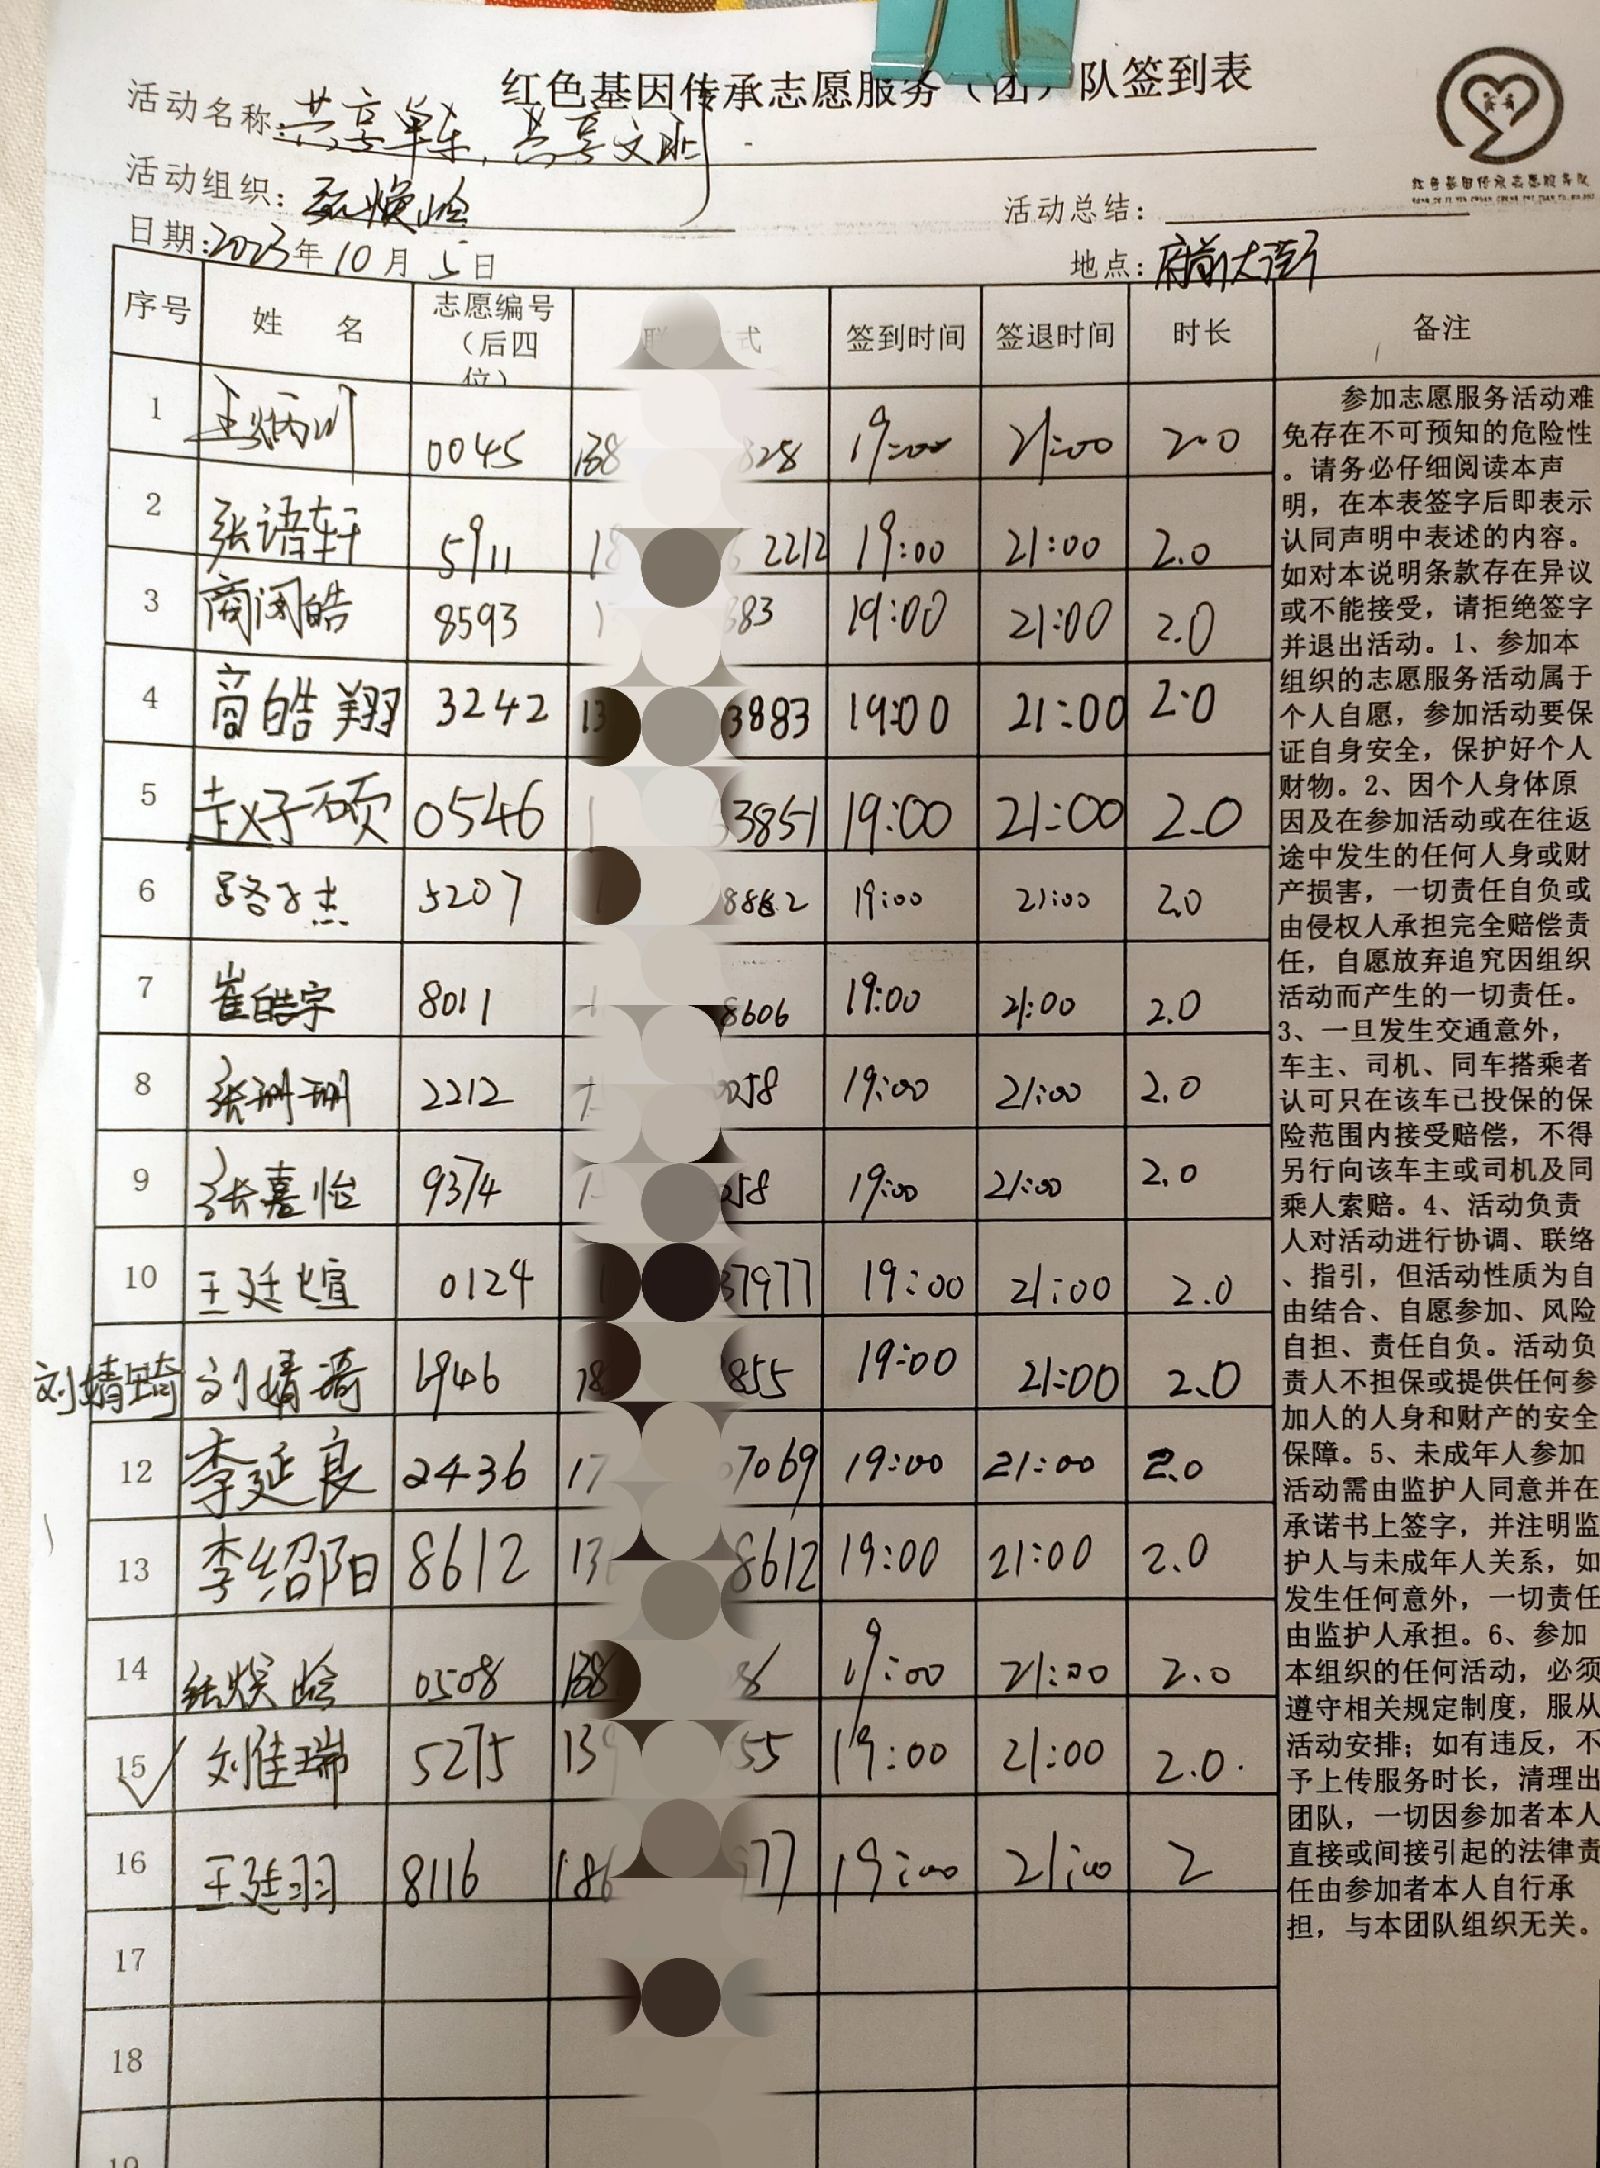 红色基因传承志愿服务（团）队签到表
活动名称：共享单车，共享文明
活动组织：
活动总结：
红色基因传承志愿服务队
日期：2023年10月5日
地点：府前大街
序号 姓 名 志愿编号（后四位） 联 式 签到时间 签退时间 时长 备注
1 王炳川 0045 138 828 19:00 21:00 2.0
2 张语轩 5911 18 2212 19:00 21:00 2.0
3 商闰皓 8593 1 383 19:00 21:00 2.0
4 商皓翔 3242 13 3883 19:00 21:00 2.0
5 赵子硕 0546 1 3851 19:00 21:00 2.0
6 路子杰 5207 1 8882 19:00 21:00 2.0
7 崔皓宇 8011 1 8606 19:00 21:00 2.0
8 张珊珊 2212 1 058 19:00 21:00 2.0
9 张嘉怡 9374 1 258 19:00 21:00 2.0
10 王廷煊 0124 1 37977 19:00 21:00 2.0
刘婧琦 刘婧琦 6946 18 855 19:00 21:00 2.0
12 李延良 2436 17 7069 19:00 21:00 2.0
13 李绍阳 8612 13 8612 19:00 21:00 2.0
14 0508 138 86 19:00 21:00 2.0
15 刘佳瑞 5275 139 55 19:00 21:00 2.0.
16 王廷羽 8116 186 977 19:00 21:00 2
17
18
19
参加志愿服务活动难
免存在不可预知的危险性
。请务必仔细阅读本声
明，在本表签字后即表示
认同声明中表述的内容。
如对本说明条款存在异议
或不能接受，请拒绝签字
并退出活动。1、参加本
组织的志愿服务活动属于
个人自愿，参加活动要保
证自身安全，保护好个人
财物。2、因个人身体原
因及在参加活动或在往返
途中发生的任何人身或财
产损害，一切责任自负或
由侵权人承担完全赔偿责
任，自愿放弃追究因组织
活动而产生的一切责任。
3、一旦发生交通意外，
车主、司机、同车搭乘者
认可只在该车已投保的保
险范围内接受赔偿，不得
另行向该车主或司机及同
乘人索赔。4、活动负责
人对活动进行协调、联络
、指引，但活动性质为自
由结合、自愿参加、风险
自担、责任自负。活动负
责人不担保或提供任何参
加人的人身和财产的安全
保障。5、未成年人参加
活动需由监护人同意并在
承诺书上签字，并注明监
护人与未成年人关系，如
发生任何意外，一切责任
由监护人承担。6、参加
本组织的任何活动，必须
遵守相关规定制度，服从
活动安排；如有违反，不
予上传服务时长，清理出
团队，一切因参加者本人
直接或间接引起的法律责
任由参加者本人自行承
担，与本团队组织无关。